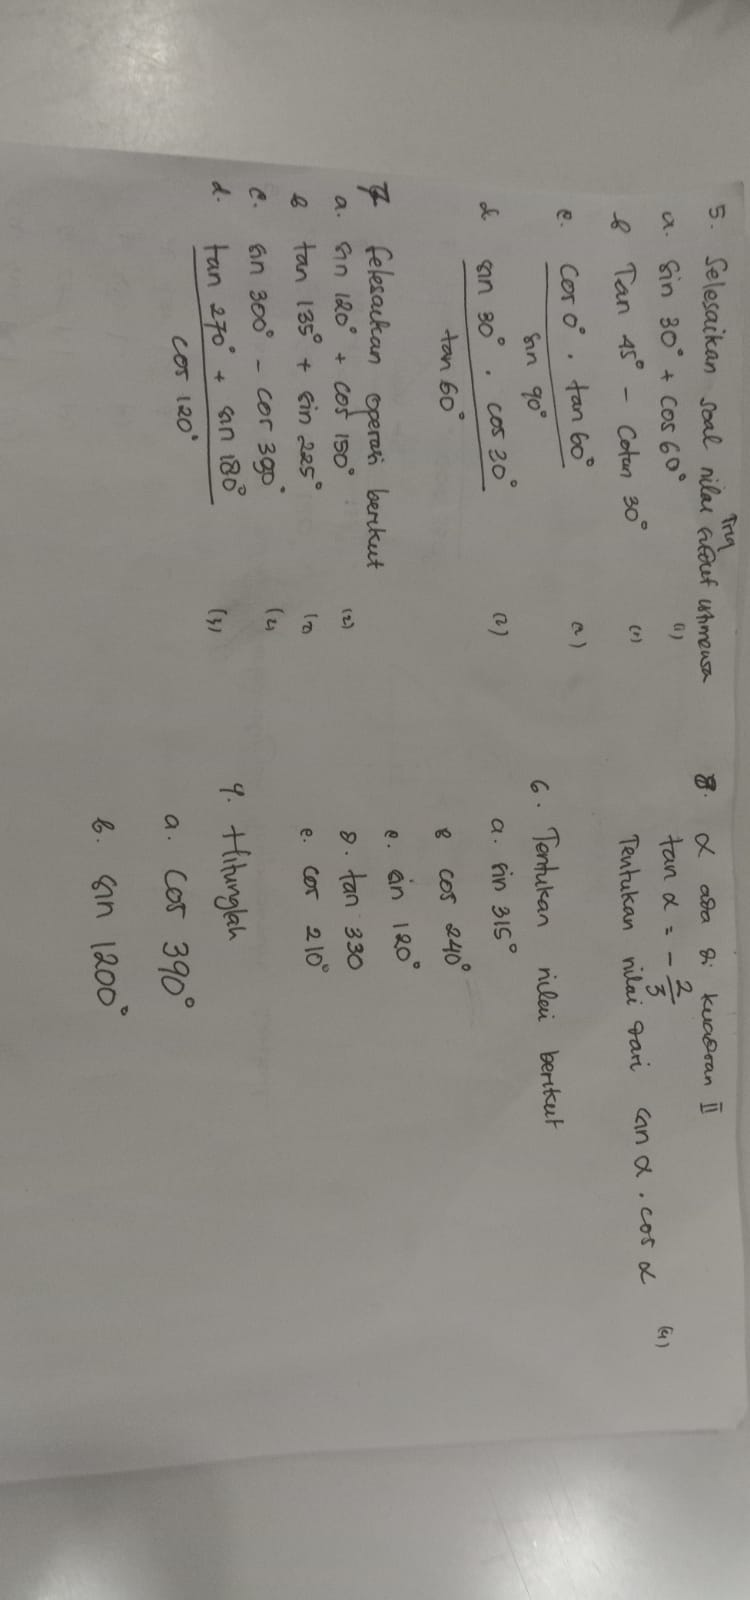 5. Selesaikan soal nilai Trig sudut istimewa
a. sin 30° + cos 60° (1)
b Tan 45° - Cotan 30° (1)
c. cos 0° . tan 60°
sin 90°
d sin 30° . cos 30° (2)
tan 60°
7 Selesaikan operasi berikut
a. sin 120° + cos 150° (2)
b tan 135° + sin 225° (2)
c. sin 300° - cos 390° (2)
d. tan 270° + sin 180° (3)
cos 120°
8. α ada di kuadran II
tan α = - 2/3
Tentukan nilai dari sin α . cos α (4)
6. Tentukan nilai berikut
a. sin 315°
b cos 240°
c. sin 120°
d. tan 330
e. cos 210°
9. Hitunglah
a. cos 390°
b. sin 1200°